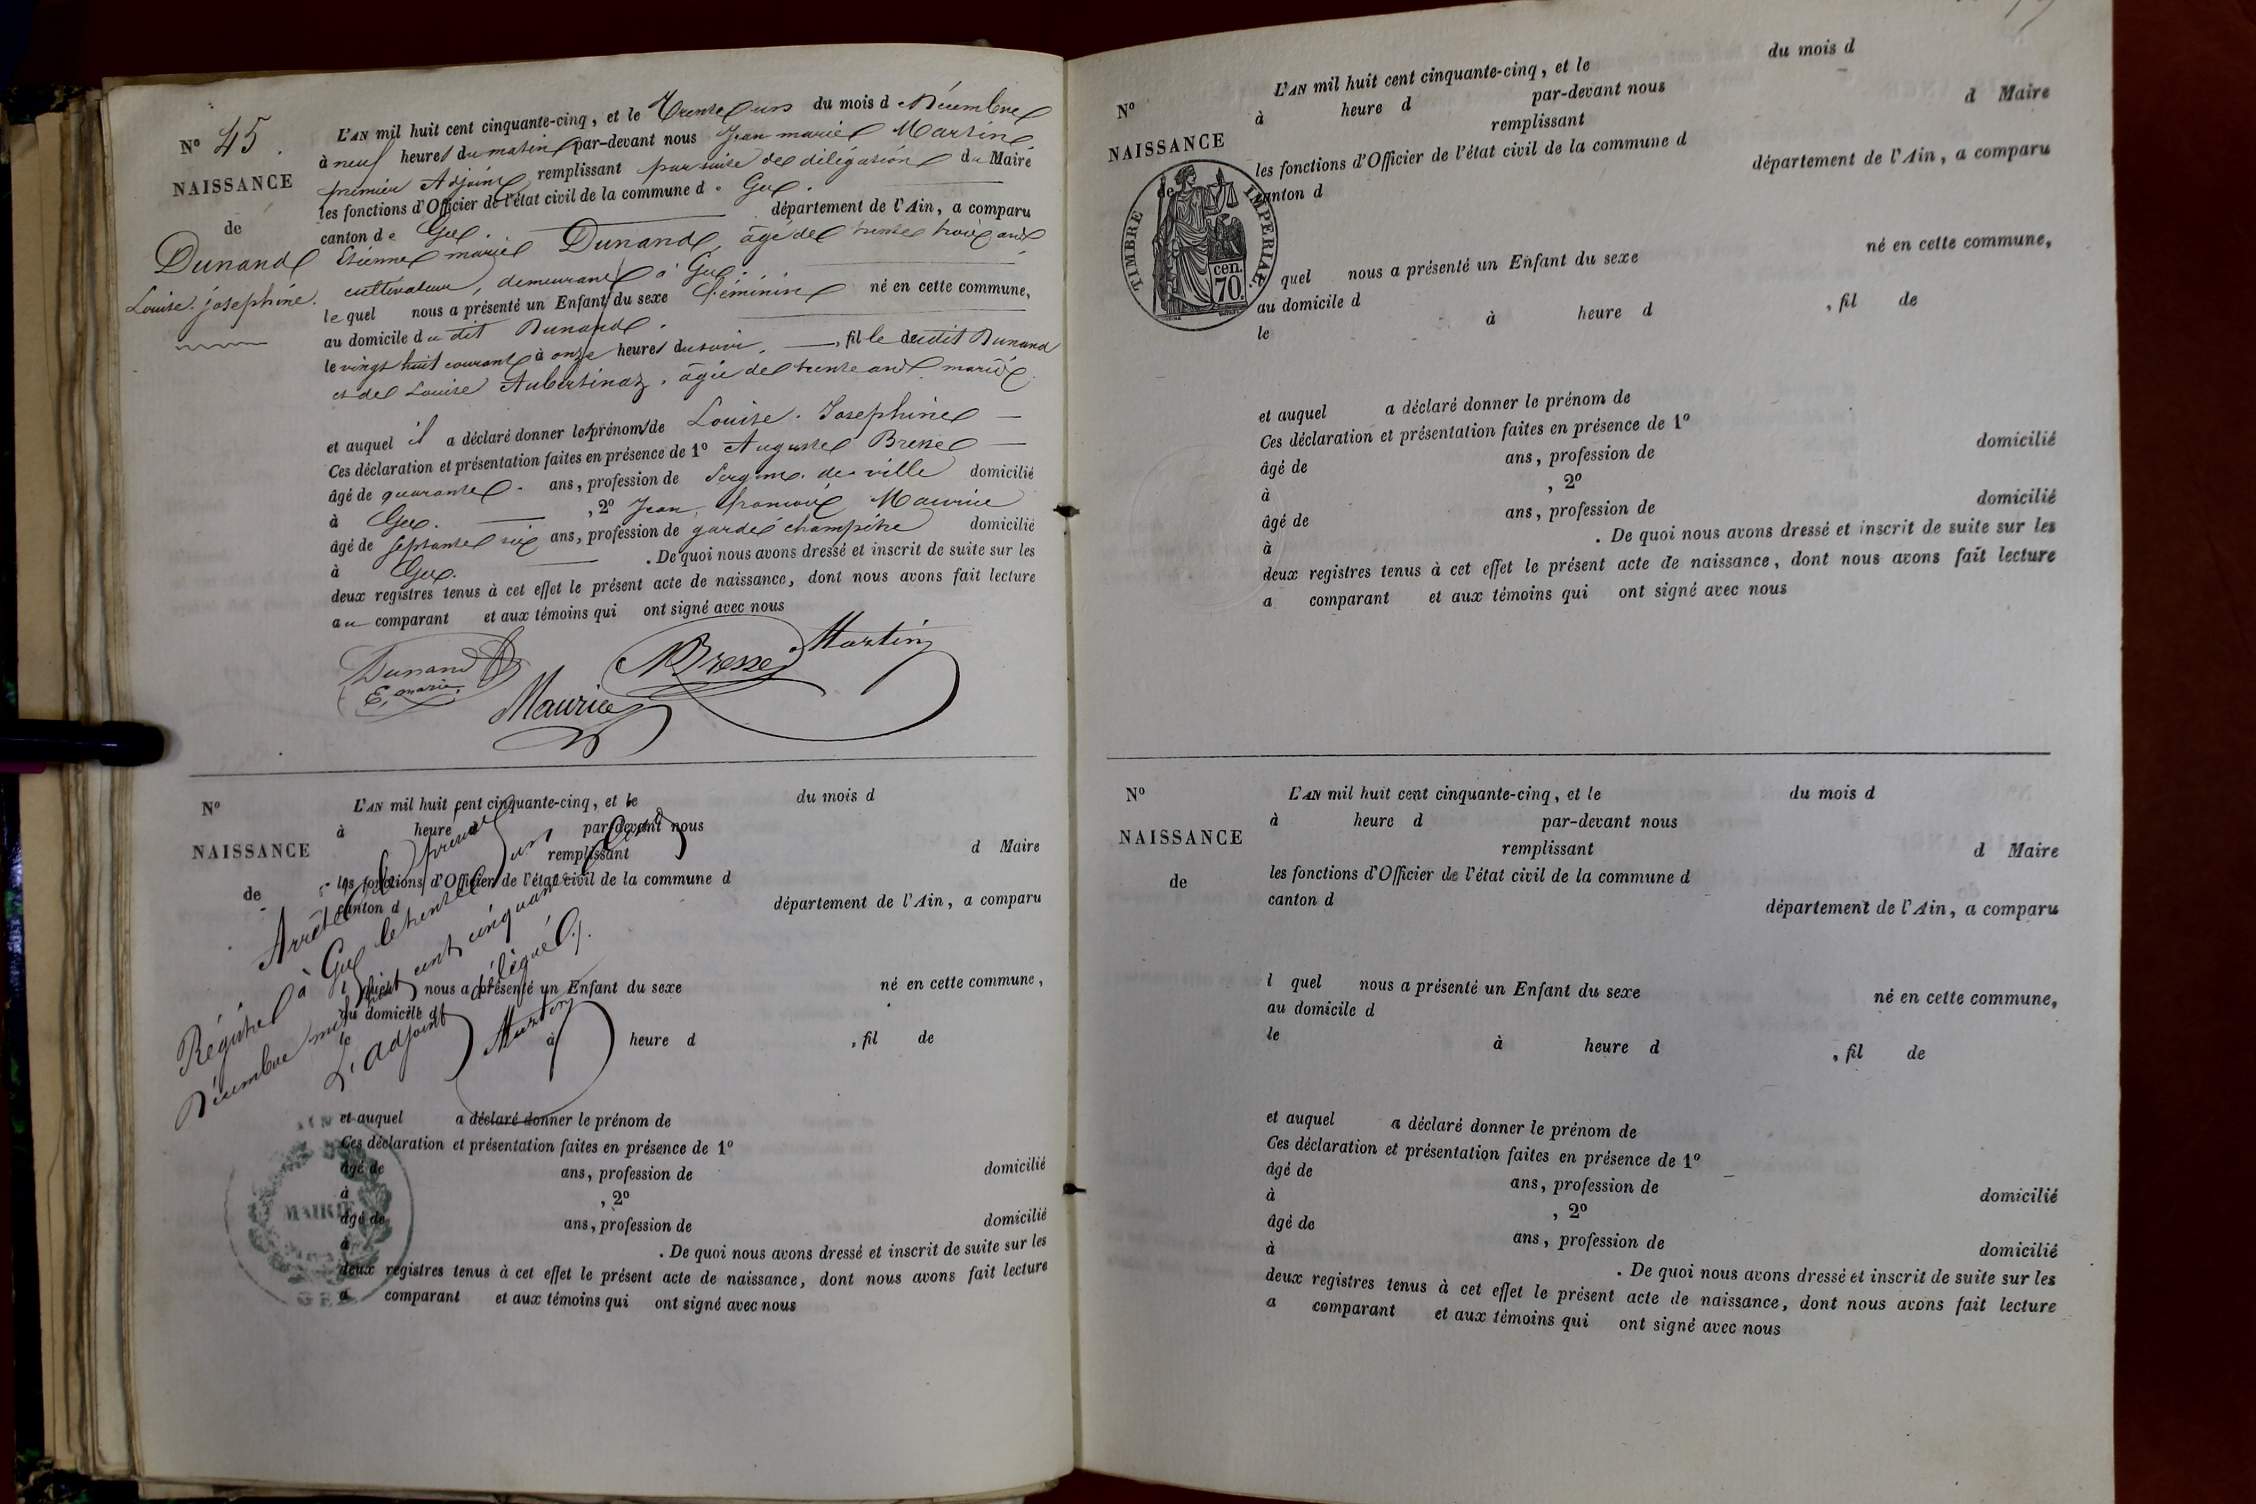 Nº 45.
NAISSANCE
de
Dunand
Louise Joséphine.
L'AN mil huit cent cinquante-cinq, et le Trente un du mois d Décembre
à neuf heures du matin par-devant nous Jean marie Martin
premier Adjoint remplissant par suite de délégation du Maire
les fonctions d'Officier de l'état civil de la commune de Gex.
canton de Gex. département de l'Ain, a comparu
Etienne marie Dunand, âgé de trente trois ans
cultivateur, demeurant à Gex.
lequel nous a présenté un Enfant du sexe féminin né en cette commune,
au domicile du dit Dunand.
le vingt huit courant à onze heures du soir, fille du dit Dunand
et de Louise Aubertinaz, âgée de trente ans mariés
et auquel il a déclaré donner les prénoms de Louise Josephine
Ces déclaration et présentation faites en présence de 1º Auguste Bresse
âgé de quarante ans, profession de Sergent de ville domicilié
à Gex. , 2º Jean françois Maurice
âgé de septante six ans, profession de garde champêtre domicilié
à Gex. . De quoi nous avons dressé et inscrit de suite sur les
deux registres tenus à cet effet le présent acte de naissance, dont nous avons fait lecture
au comparant et aux témoins qui ont signé avec nous
Dunand
E. marie
Maurice
Bresse
Martin
Nº
NAISSANCE
de
L'AN mil huit cent cinquante-cinq, et le du mois d
à heure d par-devant nous
remplissant d Maire
les fonctions d'Officier de l'état civil de la commune d
canton d département de l'Ain, a comparu
quel nous a présenté un Enfant du sexe né en cette commune,
au domicile d
le à heure d , fil de
et auquel a déclaré donner le prénom de
Ces déclaration et présentation faites en présence de 1º
âgé de ans, profession de domicilié
à , 2º
âgé de ans, profession de domicilié
à . De quoi nous avons dressé et inscrit de suite sur les
deux registres tenus à cet effet le présent acte de naissance, dont nous avons fait lecture
a comparant et aux témoins qui ont signé avec nous
Arrêté le présent
Régistre à Gex le trente un
Décembre mil huit cent cinquante cinq
L'adjoint délégué
Martin
MAIRIE
GEX
Nº
NAISSANCE
de
TIMBRE IMPERIAL
cen.
70.
L'AN mil huit cent cinquante-cinq, et le du mois d
à heure d par-devant nous
remplissant d Maire
les fonctions d'Officier de l'état civil de la commune d
canton d département de l'Ain, a comparu
quel nous a présenté un Enfant du sexe né en cette commune,
au domicile d
le à heure d , fil de
et auquel a déclaré donner le prénom de
Ces déclaration et présentation faites en présence de 1º
âgé de ans, profession de domicilié
à , 2º
âgé de ans, profession de domicilié
à . De quoi nous avons dressé et inscrit de suite sur les
deux registres tenus à cet effet le présent acte de naissance, dont nous avons fait lecture
a comparant et aux témoins qui ont signé avec nous
Nº
NAISSANCE
de
L'AN mil huit cent cinquante-cinq, et le du mois d
à heure d par-devant nous
remplissant d Maire
les fonctions d'Officier de l'état civil de la commune d
canton d département de l'Ain, a comparu
l quel nous a présenté un Enfant du sexe né en cette commune,
au domicile d
le à heure d , fil de
et auquel a déclaré donner le prénom de
Ces déclaration et présentation faites en présence de 1º
âgé de ans, profession de domicilié
à , 2º
âgé de ans, profession de domicilié
à . De quoi nous avons dressé et inscrit de suite sur les
deux registres tenus à cet effet le présent acte de naissance, dont nous avons fait lecture
a comparant et aux témoins qui ont signé avec nous